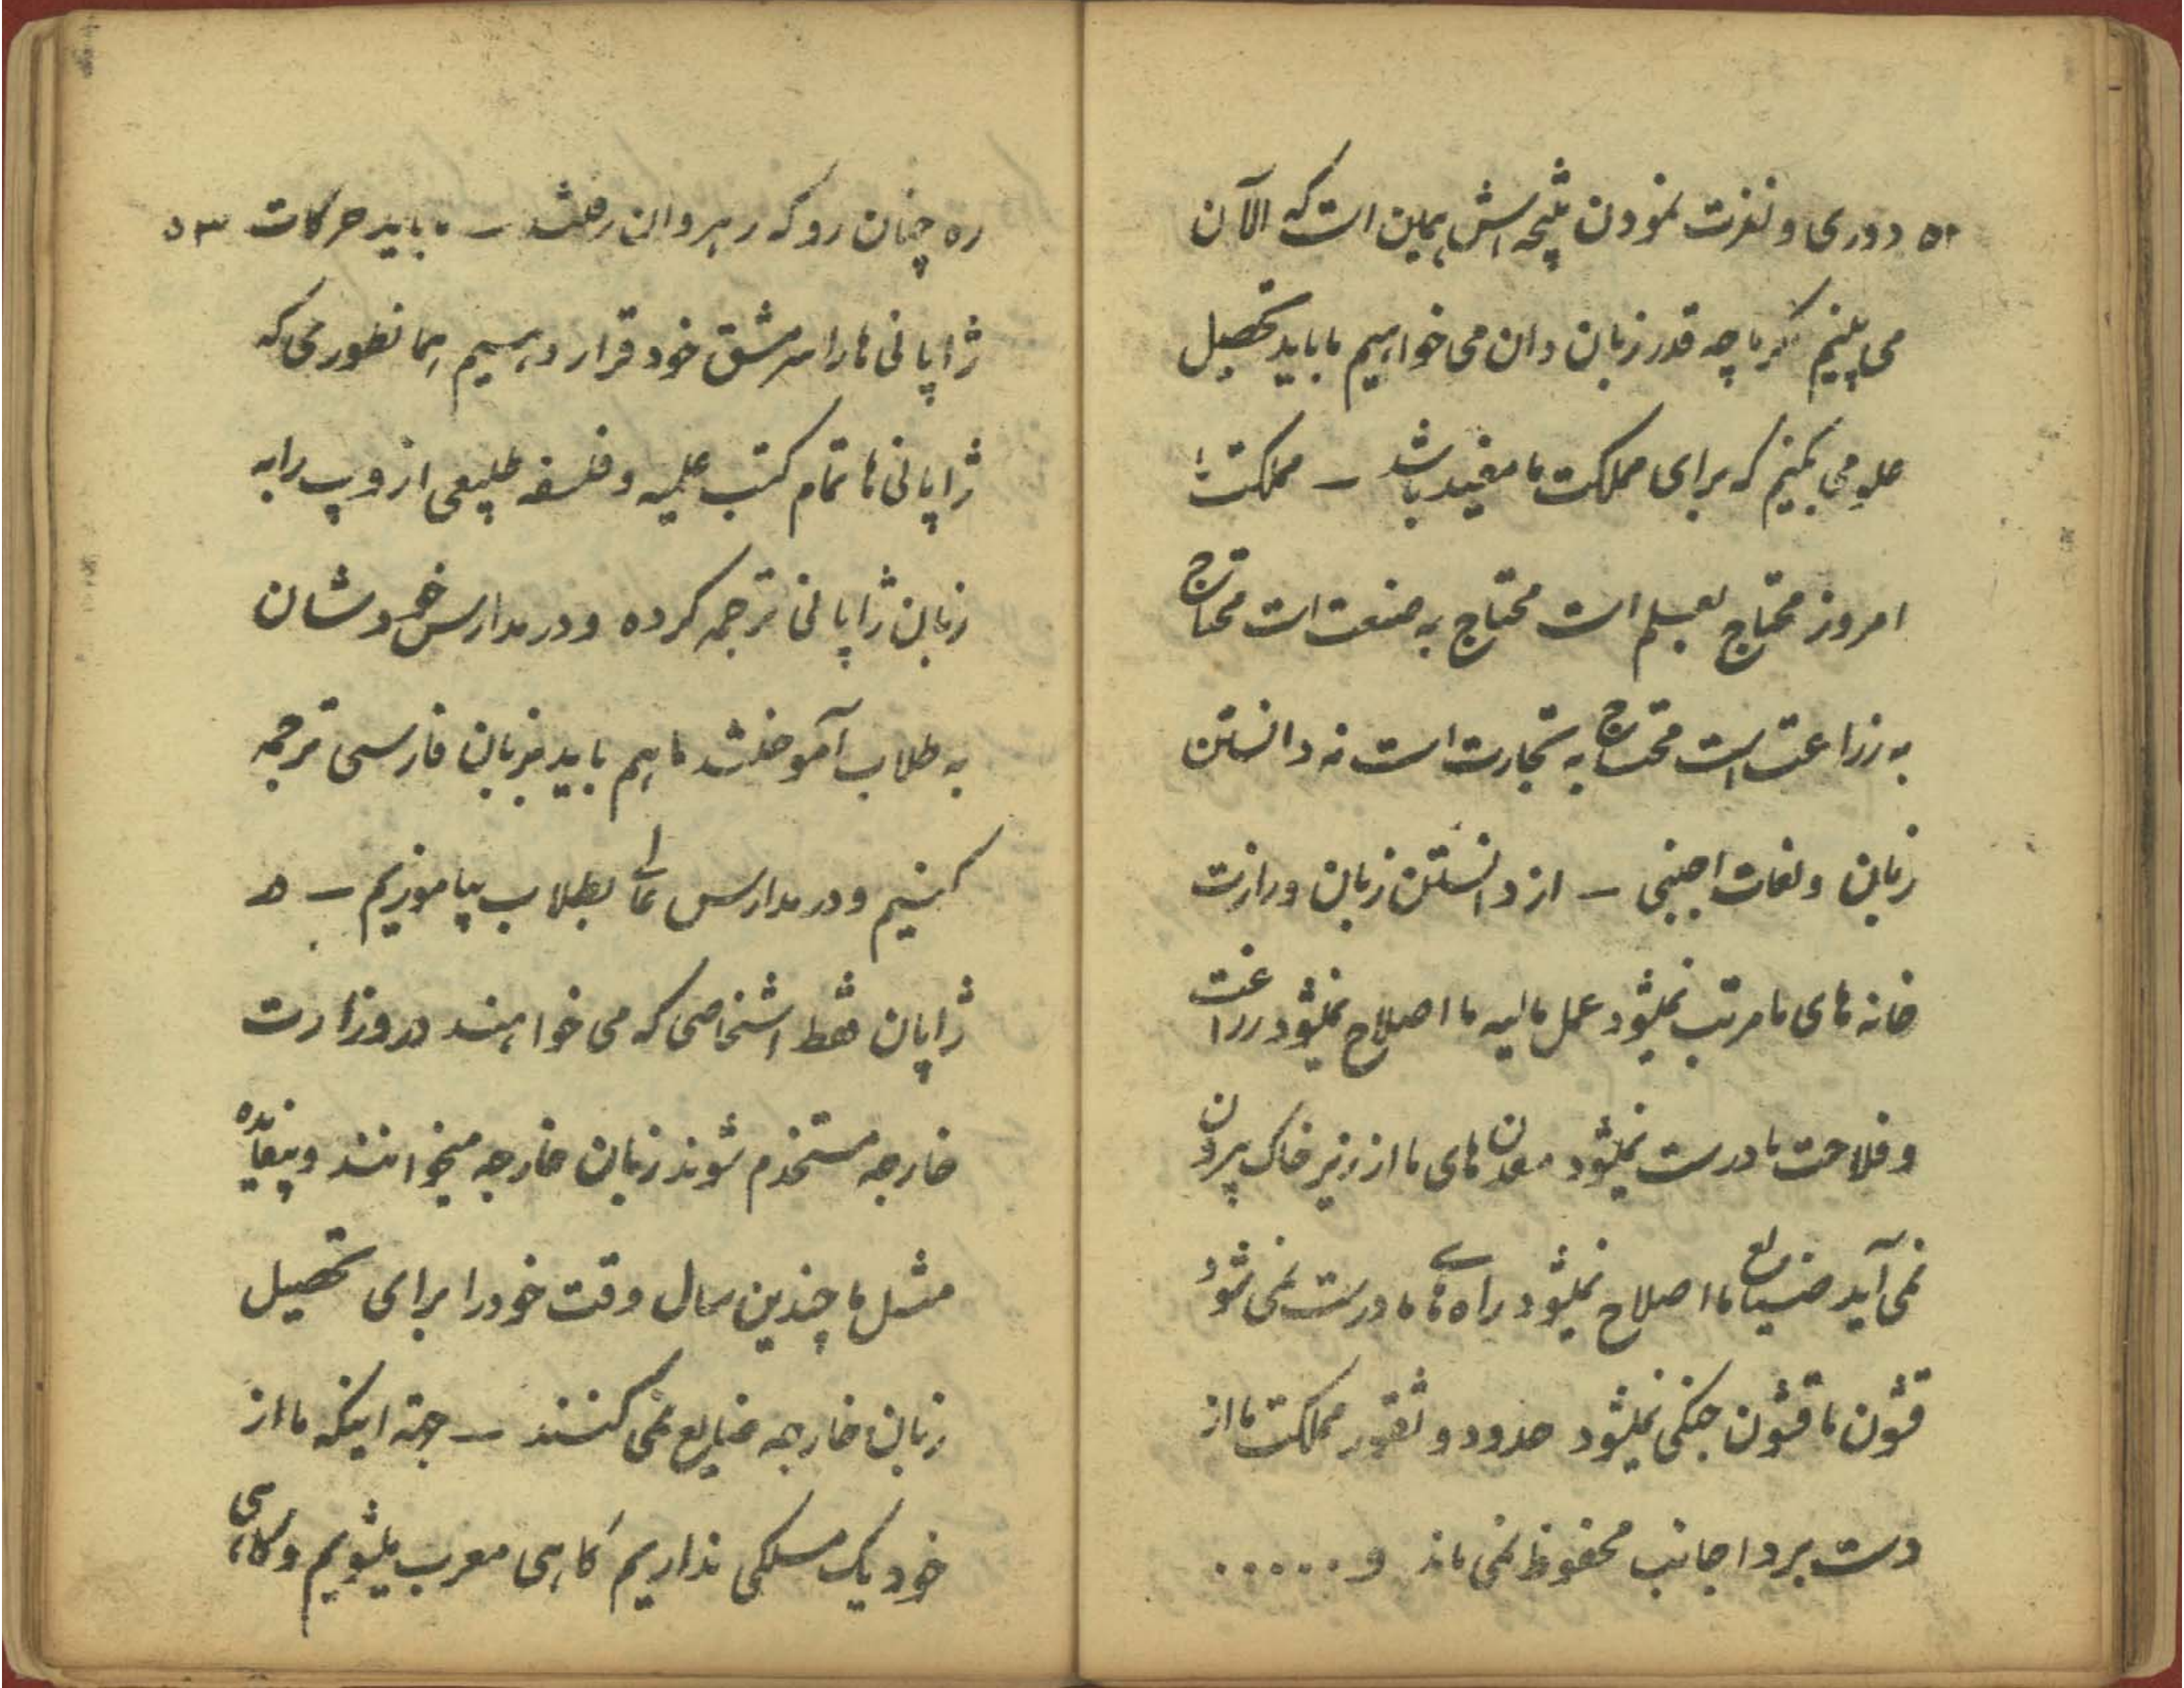 ۵۲ دوری و نفرت نمودن نتیجه اش همین است که الآن
می بینیم مگر ما چه قدر زبان دان می خواهیم ما باید تحصیل
علومی بکنیم که برای مملکت ما مفید باشد – مملکت ما
امروز محتاج بعلم است محتاج به صنعت است محتاج
به زراعت است محتاج به تجارت است نه دانستن
زبان و لغات اجنبی – از دانستن زبان وزارت
خانه های ما مرتب نمیشود عمل مالیه ما اصلاح نمیشود زراعت
و فلاحت ما درست نمیشود معدن های ما از زیر خاک بیرون
نمی آید صنایع ما اصلاح نمیشود راه های ما درست نمی شود
قشون ما قشون جنگی نمیشود حدود و ثغور مملکت ما از
دست برد اجانب محفوظ نمی ماند و ......
ره چنان رو که رهروان رفتند – ما باید حرکات ۵۳
ژاپانی ها را سرمشق خود قرار دهیم همانطوری که
ژاپانی ها تمام کتب علمیه و فلسفه طبیعی اروپ را به
زبان ژاپانی ترجمه کرده و در مدارس خودشان
به طلاب آموختند ما هم باید بزبان فارسی ترجمه
کنیم و در مدارس عالی بطلاب بیاموزیم – در
ژاپان فقط اشخاصی که می خواهند در وزارت
خارجه مستخدم شوند زبان خارجه میخوانند و بیفایده
مثل ما چندین سال وقت خود را برای تحصیل
زبان خارجه ضایع نمی کنند – جهة اینکه ما از
خود یک مسلکی نداریم گاهی معرب میشویم و گاهی